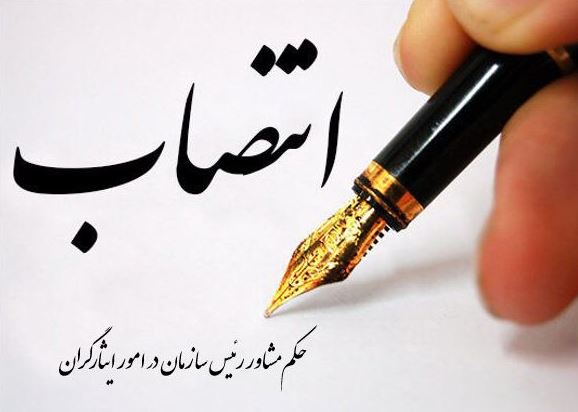 انتصاب
حکم مشاور رئیس سازمان در امور ایثارگران